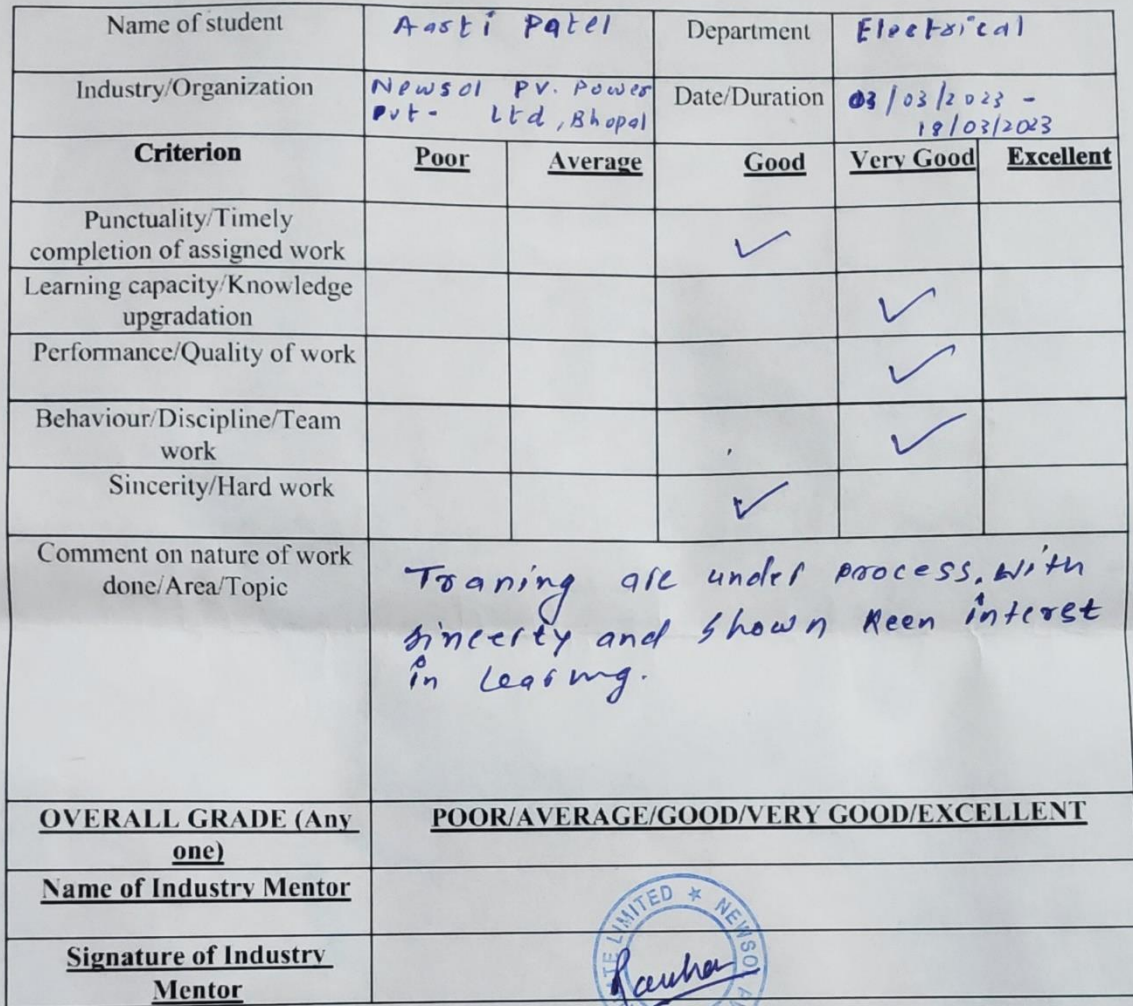 Name of student Aarti Patel Department Electrical
Industry/Organization Newsol PV. Power Date/Duration 03/03/2023 -
Pvt- Ltd, Bhopal 18/03/2023
Criterion Poor Average Good Very Good Excellent
Punctuality/Timely
completion of assigned work ✓
Learning capacity/Knowledge
upgradation ✓
Performance/Quality of work ✓
Behaviour/Discipline/Team
work ✓
Sincerity/Hard work ✓
Comment on nature of work
done/Area/Topic
Traning are under process. with
sincerty and shown keen interst
in learing.
OVERALL GRADE (Any
one)
POOR/AVERAGE/GOOD/VERY GOOD/EXCELLENT
Name of Industry Mentor
LIMITED * NEWSOL
Signature of Industry
Mentor